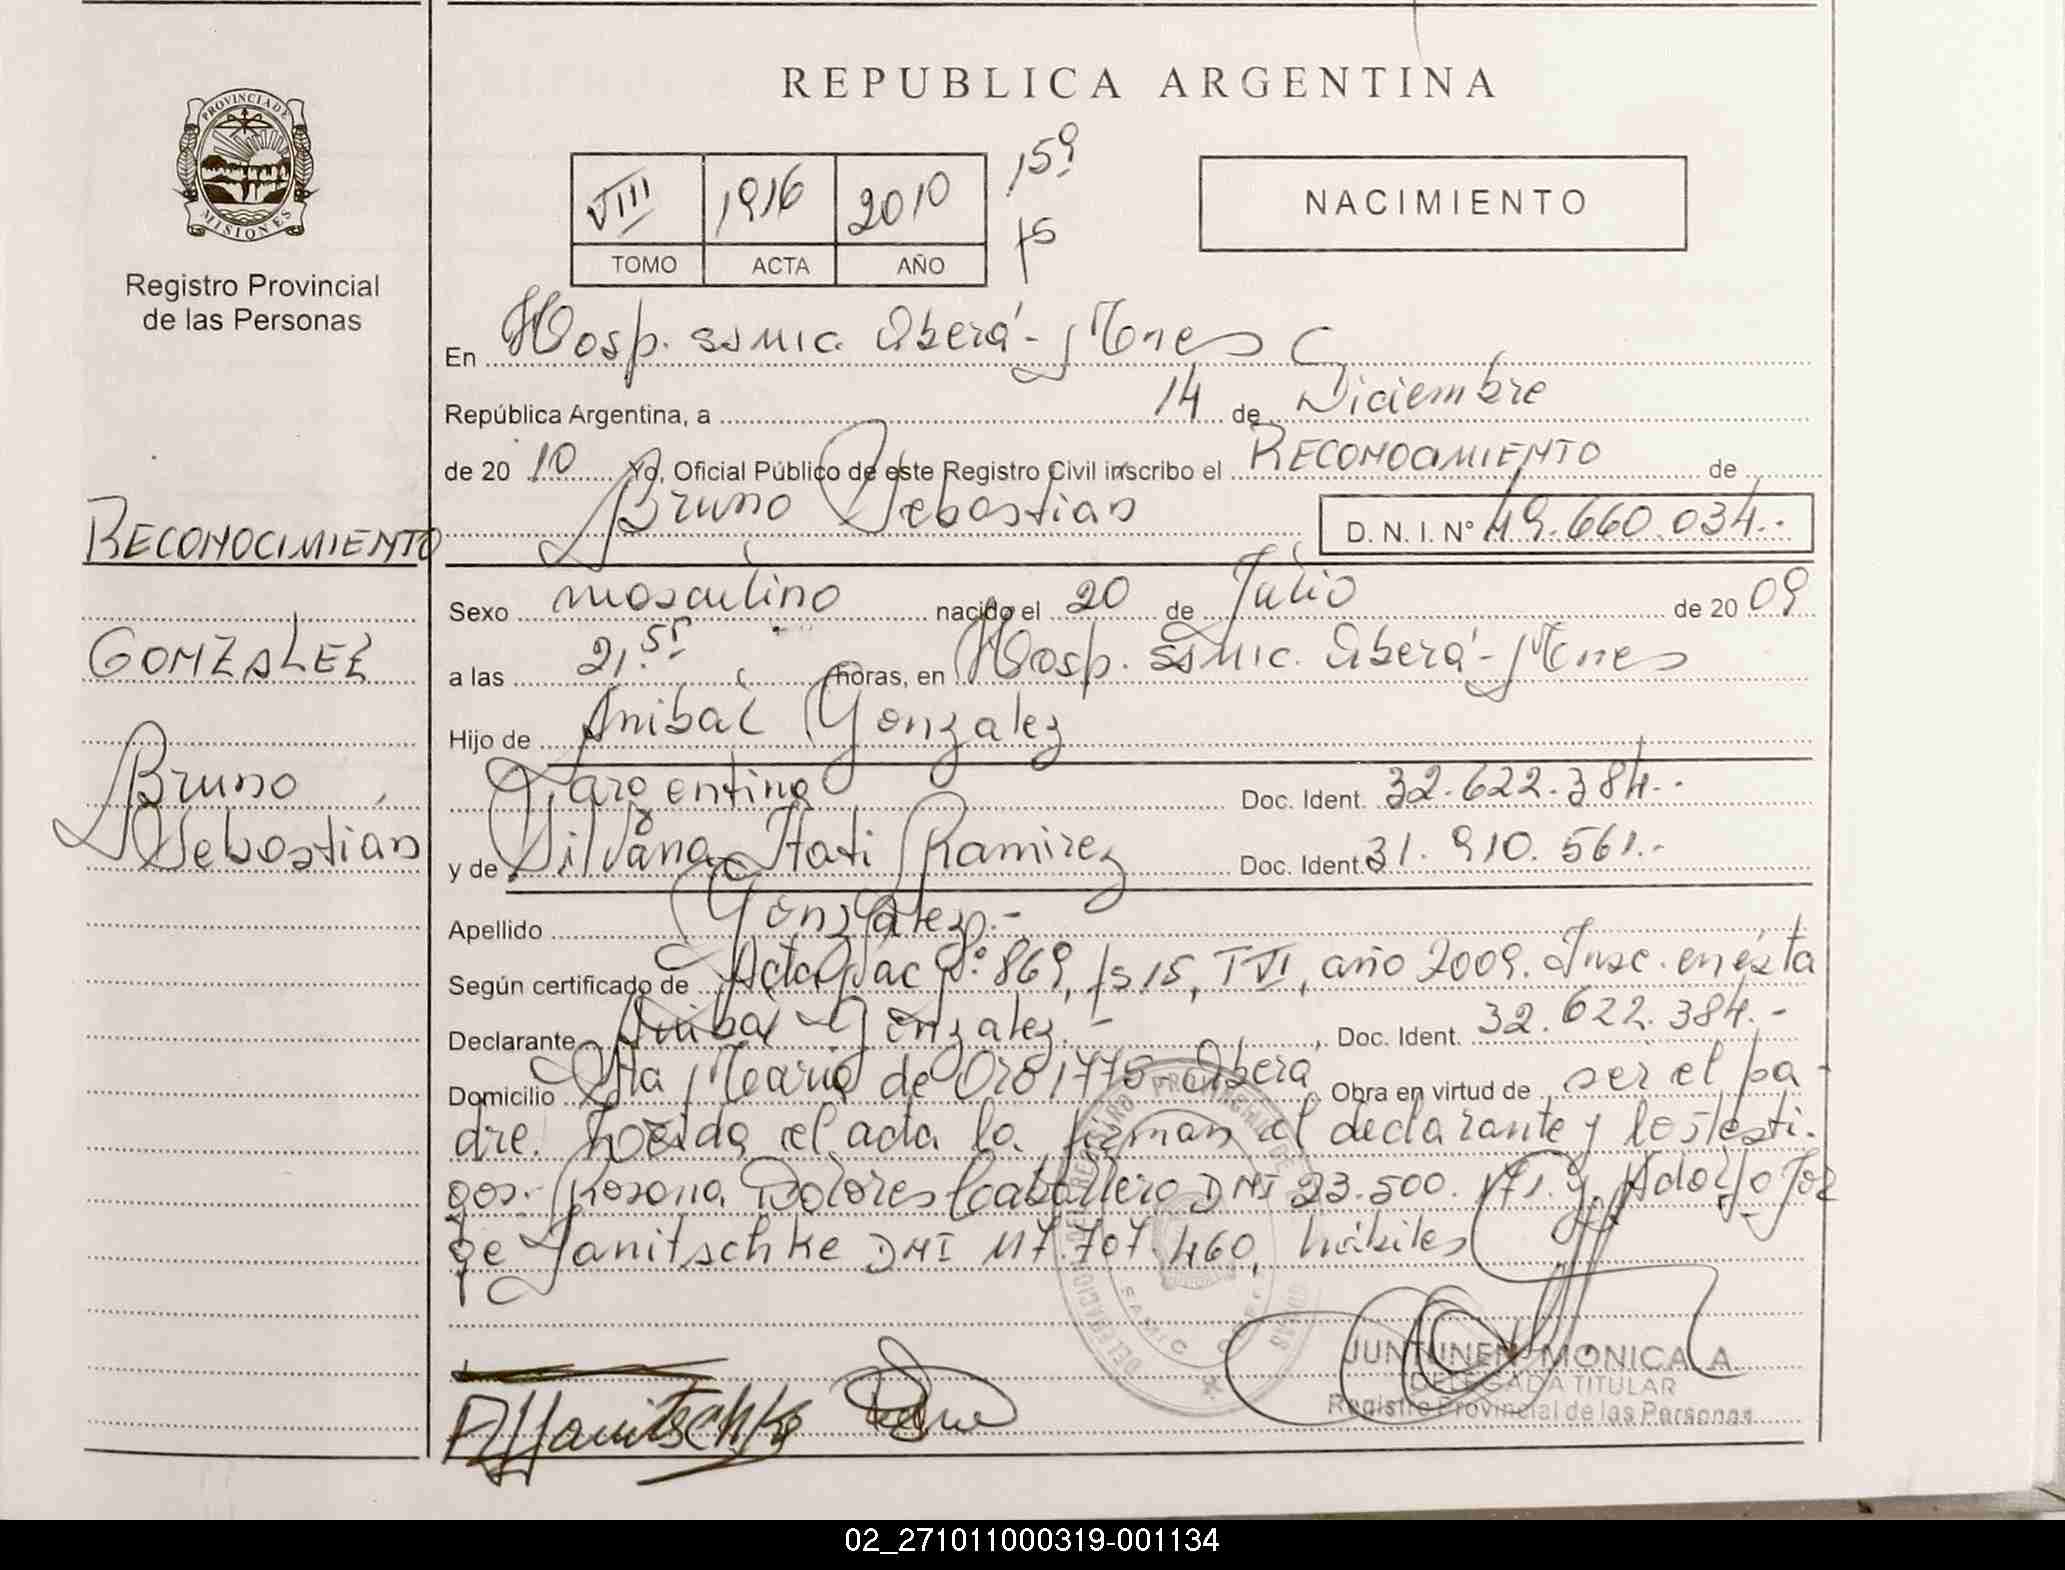 REPUBLICA ARGENTINA
PROVINCIA DE
MISIONES
Registro Provincial
de las Personas
VIII 1916 2010 159
TOMO ACTA AÑO fs
NACIMIENTO
En Hosp. SSMIC. Oberá - Mnes
República Argentina, a 14 de Diciembre
de 20 10 Yo, Oficial Público de este Registro Civil inscribo el RECONOCIMIENTO de
Bruno Sebastian D. N. I. Nº 49.660.034.-
RECONOCIMIENTO
Sexo masculino nacido el 20 de Julio de 20 09
GONZALEZ
a las 21.55 horas, en Hosp. SSMIC. Oberá - Mnes
Hijo de Anibal Gonzalez
Bruno
Sebastian
argentino Doc. Ident. 32.622.384.-
y de Silvana Itati Ramirez Doc. Ident. 31.910.561.-
Apellido Gonzalez.-
Según certificado de Acta Nac Nº 869, fs 15, T VI, año 2009. Insc. en ésta
Declarante Anibal Gonzalez.- , Doc. Ident. 32.622.384.-
Domicilio Sta Maria de Oro 1775 - Oberá Obra en virtud de ser el pa-
dre. Leída el acta la firman el declarante y los testi-
gos.- Rosana Dolores Caballero DNI 23.500.171. y Adolfo Jor
ge Janitschke DNI 17.707.460, hábiles
JUNTUNEN MONICA A.
DELEGADA TITULAR
Registro Provincial de las Personas
AJJanitschke
02_271011000319-001134